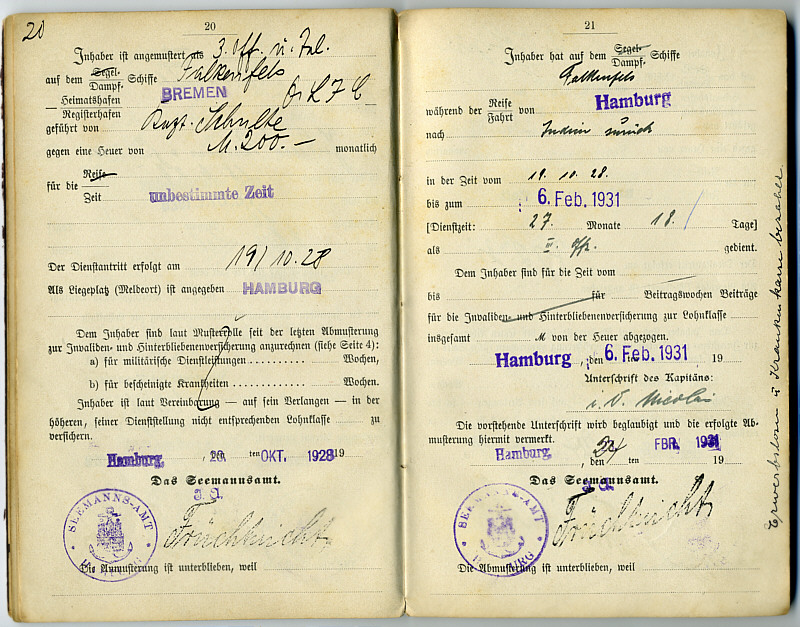 20
20
Inhaber ist angemustert als 3. Off. u.
auf dem Segel- Dampf- Schiffe Falkenfels
Heimatshafen BREMEN
Registerhafen
geführt von Kapt. Schulte
gegen eine Heuer von M. 200.— monatlich
für die Reise
Zeit unbestimmte Zeit
Der Dienstantritt erfolgt am 19/10.28
Als Liegeplatz (Meldeort) ist angegeben HAMBURG
Dem Inhaber sind laut Musterrolle seit der letzten Abmusterung
zur Invaliden- und Hinterbliebenenversicherung anzurechnen (siehe Seite 4):
a) für militärische Dienstleistungen ........... Wochen,
b) für bescheinigte Krankheiten ........... Wochen.
Inhaber ist laut Vereinbarung — auf sein Verlangen — in der
höheren, seiner Dienststellung nicht entsprechenden Lohnklasse zu
versichern.
Hamburg, 20. ten OKT. 1928 19
Das Seemannsamt.
SEEMANNS-AMT HAMBURG
Früchtnicht
Die Abmusterung ist unterblieben, weil
21
Inhaber hat auf dem Segel- Dampf- Schiffe
Falkenfels
während der Reise Fahrt von Hamburg
nach Indien zurück
in der Zeit vom 19. 10. 28.
bis zum 6. Feb. 1931
[Dienstzeit: 27. Monate 18. Tage]
als III. Offz. gedient.
Dem Inhaber sind für die Zeit vom
bis für Beitragswochen Beiträge
für die Invaliden- und Hinterbliebenenversicherung zur Lohnklasse
insgesamt M von der Heuer abgezogen.
Hamburg, den 6. Feb. 1931 19
Unterschrift des Kapitäns:
i. V. Nicolai
Die vorstehende Unterschrift wird beglaubigt und die erfolgte Ab-
musterung hiermit vermerkt.
Hamburg, den ten FBR. 1931 19
Das Seemannsamt.
SEEMANNS-AMT HAMBURG
Früchtnicht
Die Abmusterung ist unterblieben, weil